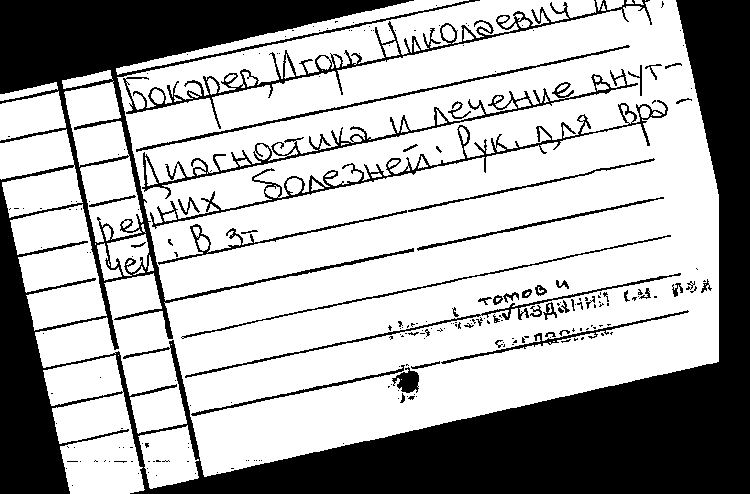 Бокарев, Игорь Николаевич и др.
Диагностика и лечение внут-
ренних болезней: Рук. для вра-
чей: В 3т
томов и
изданий см. под
заглавием